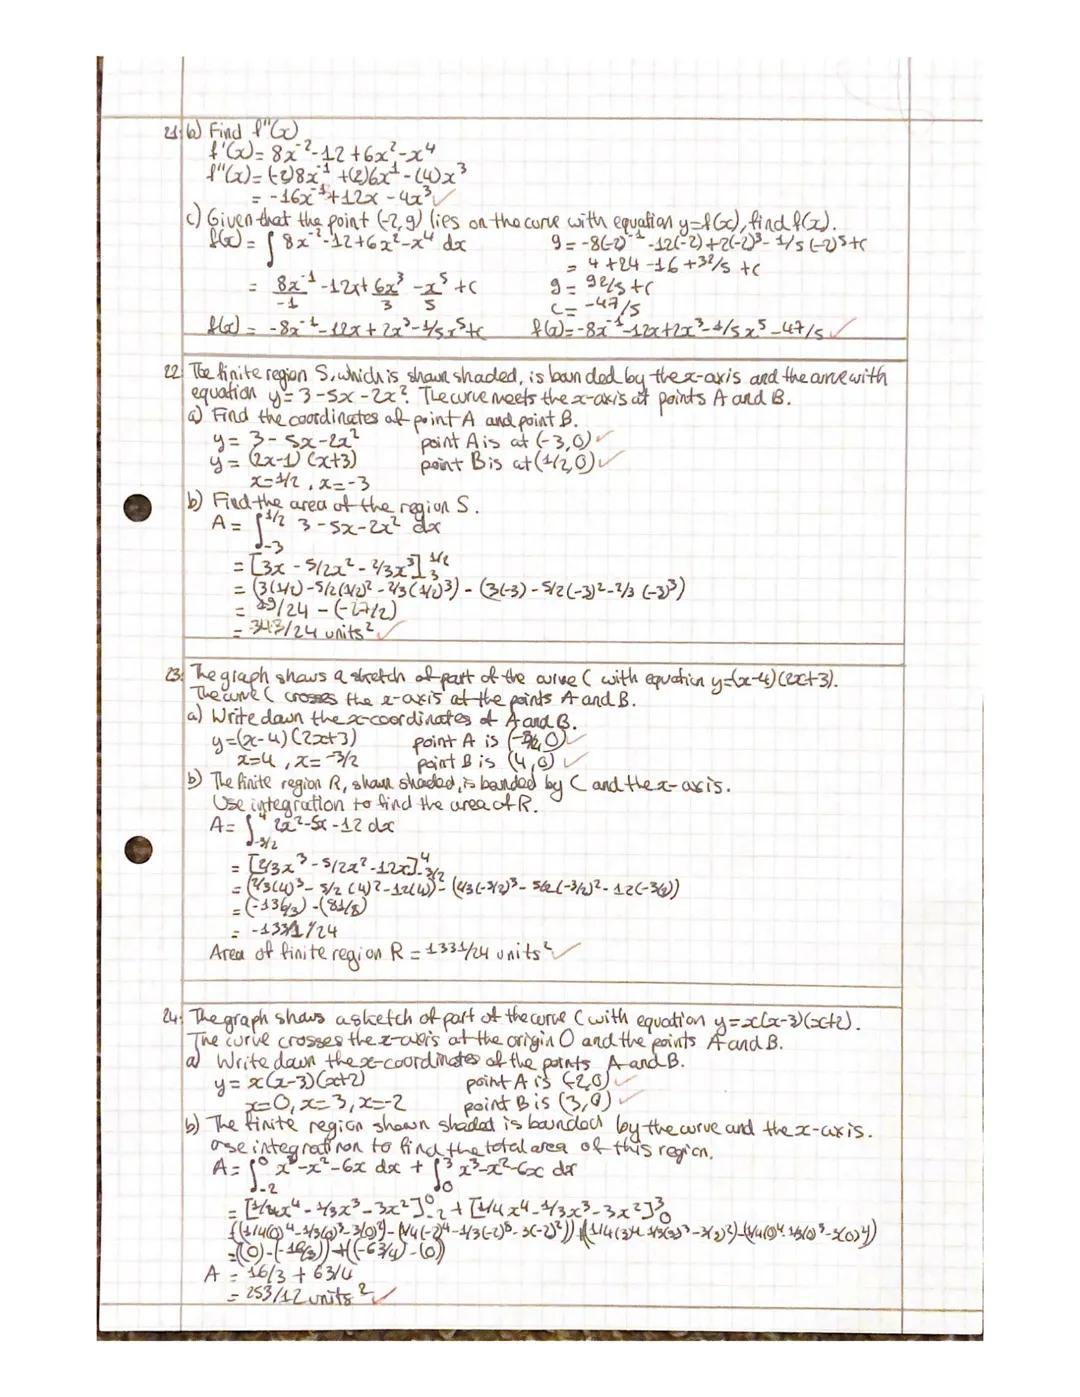 21. b) Find f''(x)
f'(x) = 8x⁻² - 12 + 6x² - x⁴
f''(x) = (-2)8x⁻¹ + (2)6x¹ - (4)x³
= -16x⁻³ + 12x - 4x³ ✓
c) Given that the point (-2, 9) lies on the curve with equation y=f(x), find f(x).
f(x) = ∫ 8x⁻² - 12 + 6x² - x⁴ dx
= 8x⁻¹/-1 - 12x + 6x³/3 - x⁵/5 + C
f(x) = -8x⁻¹ - 12x + 2x³ - 1/5x⁵ + c
9 = -8(-2)⁻¹ - 12(-2) + 2(-2)³ - 1/5(-2)⁵ + c
= 4 + 24 - 16 + 32/5 + c
9 = 92/5 + c
C = -47/5
f(x) = -8x⁻¹ - 12x + 2x³ - 1/5x⁵ - 47/5 ✓
22. The finite region S, which is shown shaded, is bounded by the x-axis and the curve with
equation y = 3 - 5x - 2x². The curve meets the x-axis at points A and B.
a) Find the coordinates of point A and point B.
y = 3 - 5x - 2x² point A is at (-3, 0) ✓
y = (2x-1)(x+3) point B is at (1/2, 0) ✓
x = 1/2, x = -3
b) Find the area of the region S.
A = ∫₋₃^1/2 3 - 5x - 2x² dx
= [3x - 5/2x² - 2/3x³]₃^1/2
= (3(1/2) - 5/2(1/2)² - 2/3(1/2)³) - (3(-3) - 5/2(-3)² - 2/3(-3)³)
= 19/24 - (-27/2)
= 343/24 units² ✓
23. The graph shows a sketch of part of the curve C with equation y=(x-4)(2x+3).
The curve C crosses the x-axis at the points A and B.
a) Write down the x-coordinates of A and B.
y = (x-4)(2x+3) point A is (-3/2, 0) ✓
x = 4, x = -3/2 point B is (4, 0) ✓
b) The finite region R, shown shaded, is bounded by C and the x-axis.
Use integration to find the area of R.
A = ∫₋₃/₂⁴ 2x² - 5x - 12 dx
= [2/3x³ - 5/2x² - 12x]₋₃/₂⁴
= (2/3(4)³ - 5/2(4)² - 12(4)) - (2/3(-3/2)³ - 5/2(-3/2)² - 12(-3/2))
= (-136/3) - (81/8)
= -1331/24
Area of finite region R = 1331/24 units² ✓
24. The graph shows a sketch of part of the curve C with equation y=x(x-3)(x+2).
The curve crosses the x-axis at the origin O and the points A and B.
a) Write down the x-coordinates of the points A and B.
y = x(x-3)(x+2) point A is (-2, 0) ✓
x=0, x=3, x=-2 point B is (3, 0) ✓
b) The finite region shown shaded is bounded by the curve and the x-axis.
Use integration to find the total area of this region.
A = ∫₋₂⁰ x³ - x² - 6x dx + ∫₀³ x³ - x² - 6x dx
= [1/4x⁴ - 1/3x³ - 3x²]₋₂⁰ + [1/4x⁴ - 1/3x³ - 3x²]₀³
((1/4(0)⁴ - 1/3(0)³ - 3(0)²) - (1/4(-2)⁴ - 1/3(-2)³ - 3(-2)²)) + ((1/4(3)⁴ - 1/3(3)³ - 3(3)²) - (1/4(0)⁴ - 1/3(0)³ - 3(0)²)
= ((0) - (-16/3)) + ((-63/4) - (0))
A = 16/3 + 63/4
= 253/12 units² ✓